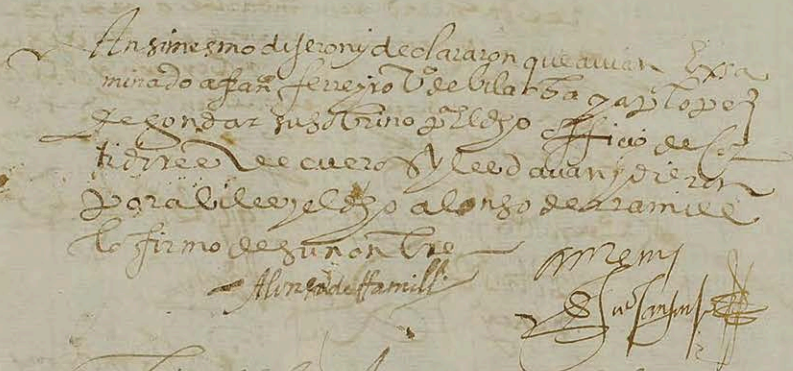 Ansimesmo dijeron y declararon que avian Exsa
minado a ffan^co ferreyro v^o de vilalba y a p^o lopez
de gondar su sobrino p^a El dho officio de
de cueros y le davan y dieron
por abile y el dho alonso de rramill
lo firmo de su nonbre
Alonso de Ramill